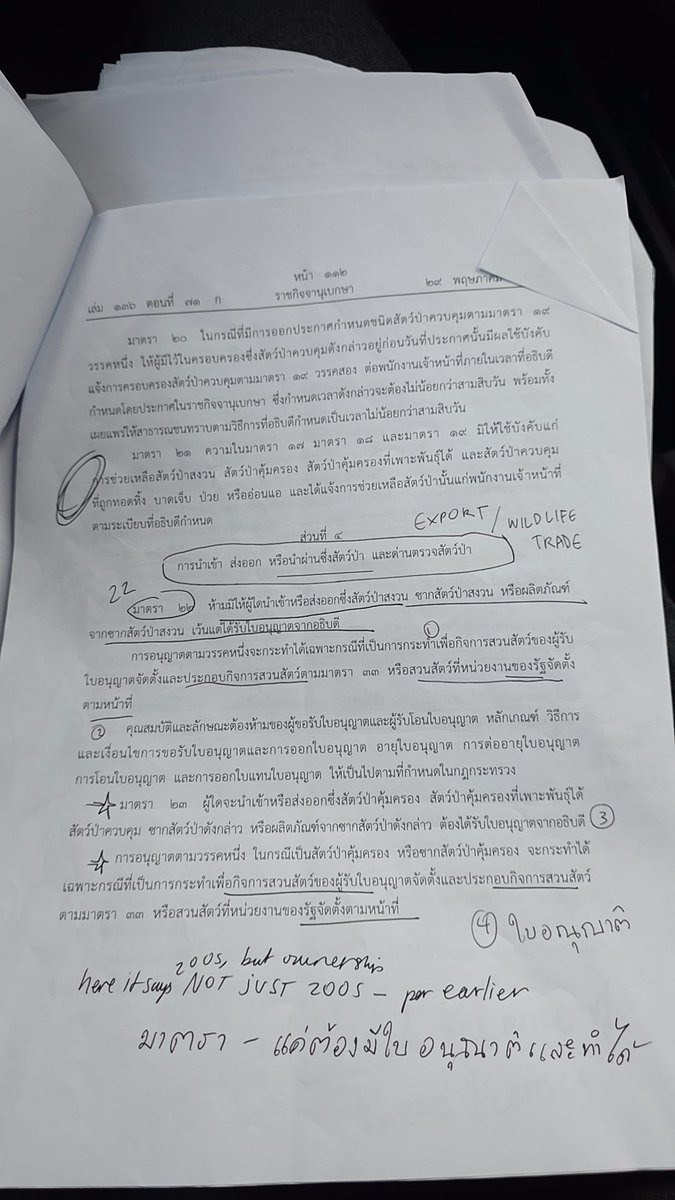 หน้า ๑๑๒
เล่ม ๑๓๖ ตอนที่ ๗๑ ก ราชกิจจานุเบกษา ๒๙ พฤษภาคม
มาตรา ๒๐ ในกรณีที่มีการออกประกาศกำหนดชนิดสัตว์ป่าควบคุมตามมาตรา ๑๙
วรรคหนึ่ง ให้ผู้มีไว้ในครอบครองซึ่งสัตว์ป่าควบคุมดังกล่าวอยู่ก่อนวันที่ประกาศนั้นมีผลใช้บังคับ
แจ้งการครอบครองสัตว์ป่าควบคุมตามมาตรา ๑๙ วรรคสอง ต่อพนักงานเจ้าหน้าที่ภายในเวลาที่อธิบดี
กำหนดโดยประกาศในราชกิจจานุเบกษา ซึ่งกำหนดเวลาดังกล่าวจะต้องไม่น้อยกว่าสามสิบวัน พร้อมทั้ง
เผยแพร่ให้สาธารณชนทราบตามวิธีการที่อธิบดีกำหนดเป็นเวลาไม่น้อยกว่าสามสิบวัน
มาตรา ๒๑ ความในมาตรา ๑๗ มาตรา ๑๘ และมาตรา ๑๙ มิให้ใช้บังคับแก่
การช่วยเหลือสัตว์ป่าสงวน สัตว์ป่าคุ้มครอง สัตว์ป่าคุ้มครองที่เพาะพันธุ์ได้ และสัตว์ป่าควบคุม
ที่ถูกทอดทิ้ง บาดเจ็บ ป่วย หรืออ่อนแอ และได้แจ้งการช่วยเหลือสัตว์ป่านั้นแก่พนักงานเจ้าหน้าที่
ตามระเบียบที่อธิบดีกำหนด
EXPORT / WILDLIFE
TRADE
ส่วนที่ ๔
การนำเข้า ส่งออก หรือนำผ่านซึ่งสัตว์ป่า และด่านตรวจสัตว์ป่า
22
มาตรา ๒๒ ห้ามมิให้ผู้ใดนำเข้าหรือส่งออกซึ่งสัตว์ป่าสงวน ซากสัตว์ป่าสงวน หรือผลิตภัณฑ์
จากซากสัตว์ป่าสงวน เว้นแต่ได้รับใบอนุญาตจากอธิบดี
①
การอนุญาตตามวรรคหนึ่งจะกระทำได้เฉพาะกรณีที่เป็นการกระทำเพื่อกิจการสวนสัตว์ของผู้รับ
ใบอนุญาตจัดตั้งและประกอบกิจการสวนสัตว์ตามมาตรา ๓๓ หรือสวนสัตว์ที่หน่วยงานของรัฐจัดตั้ง
ตามหน้าที่
② คุณสมบัติและลักษณะต้องห้ามของผู้ขอรับใบอนุญาตและผู้รับโอนใบอนุญาต หลักเกณฑ์ วิธีการ
และเงื่อนไขการขอรับใบอนุญาตและการออกใบอนุญาต อายุใบอนุญาต การต่ออายุใบอนุญาต
การโอนใบอนุญาต และการออกใบแทนใบอนุญาต ให้เป็นไปตามที่กำหนดในกฎกระทรวง
☆ มาตรา ๒๓ ผู้ใดจะนำเข้าหรือส่งออกซึ่งสัตว์ป่าคุ้มครอง สัตว์ป่าคุ้มครองที่เพาะพันธุ์ได้
สัตว์ป่าควบคุม ซากสัตว์ป่าดังกล่าว หรือผลิตภัณฑ์จากซากสัตว์ป่าดังกล่าว ต้องได้รับใบอนุญาตจากอธิบดี ③
☆ การอนุญาตตามวรรคหนึ่ง ในกรณีเป็นสัตว์ป่าคุ้มครอง หรือซากสัตว์ป่าคุ้มครอง จะกระทำได้
เฉพาะกรณีที่เป็นการกระทำเพื่อกิจการสวนสัตว์ของผู้รับใบอนุญาตจัดตั้งและประกอบกิจการสวนสัตว์
ตามมาตรา ๓๓ หรือสวนสัตว์ที่หน่วยงานของรัฐจัดตั้งตามหน้าที่
④ ใบอณุญาติ
zoos, but ownership
here it says NOT JUST ZOOS – per earlier
มาตรา – แค่ต้องมีใบอนุญาติและทำได้